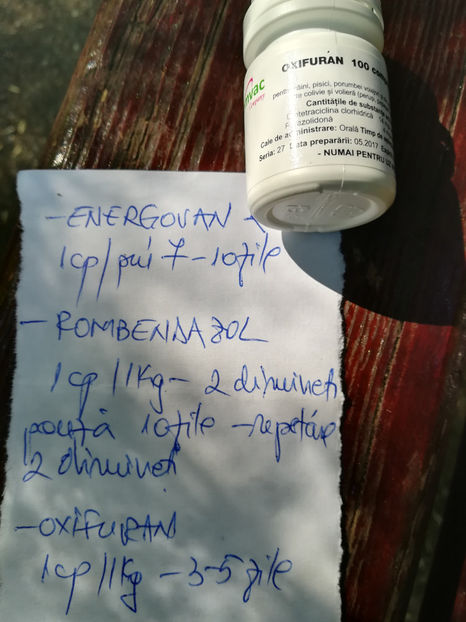 OXIFURAN 100 com
vac
pentru câini, pisici, porumbei voiajori
de colivie și volieră (peruși,
Cantitățile de substanțe
Oxitetraciclina clorhidrică
Furazolidonă
Cale de administrare: Orală Timp de
Seria: 27 Data preparării: 05.2017
- NUMAI PENTRU UZ
- ENERGOVAN -
1cp/pui 7-10 zile
- ROMBENDAZOL
1cp/1Kg - 2 dimineți
pauză 10 zile - repetare
2 dimineți
- OXIFURAN
1cp/1Kg - 3-5 zile